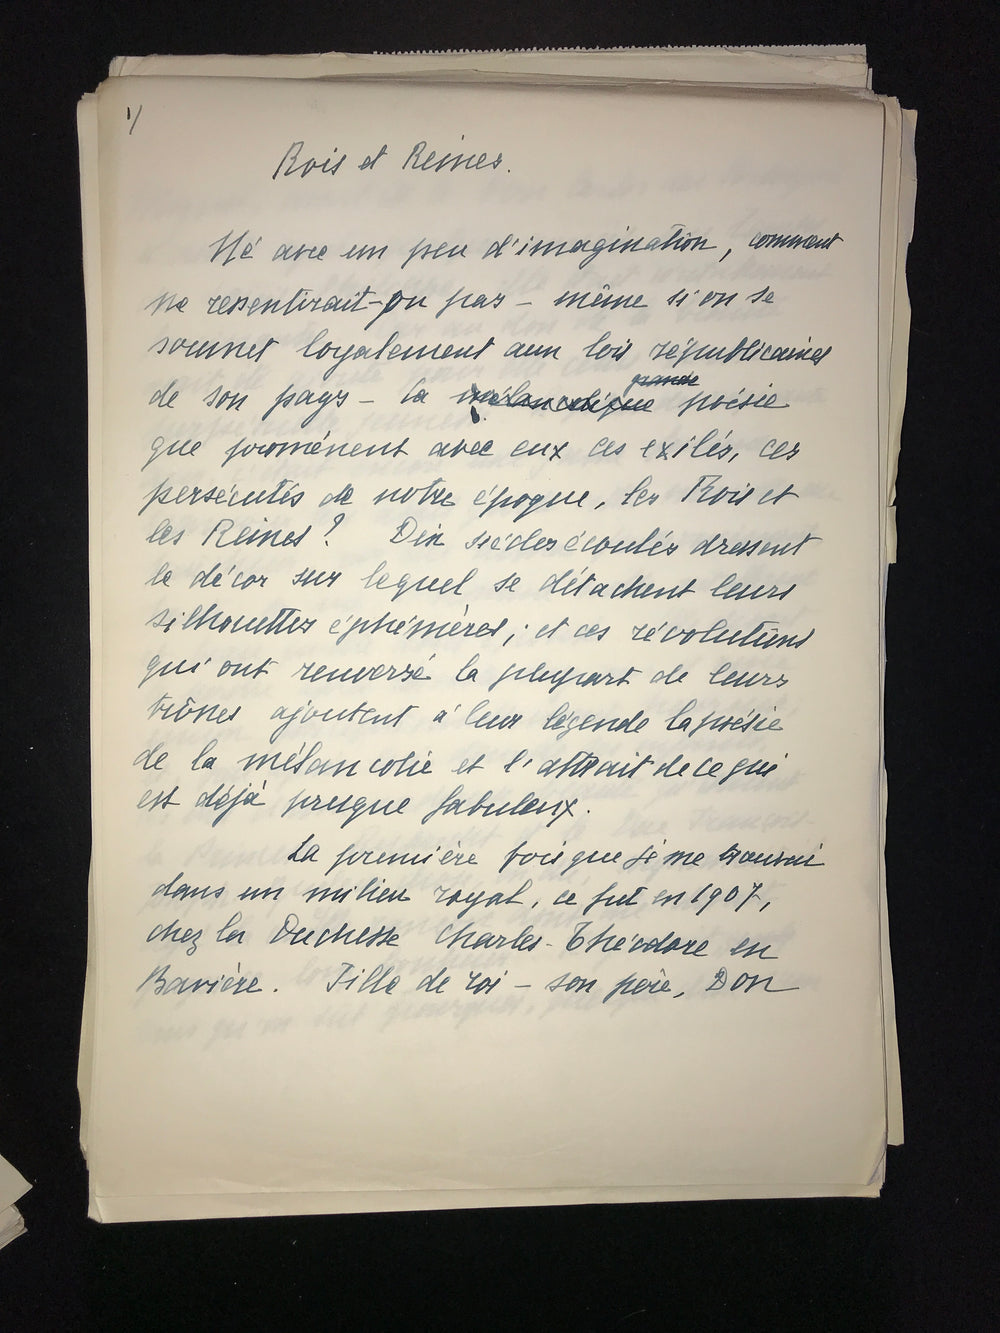 1/
Rois et Reines.
Né avec un peu d'imagination, comment
ne ressentirait-on pas – même si on se
soumet loyalement aux lois républicaines
de son pays – la mélancolique grande poésie
que promènent avec eux ces exilés, ces
persécutés de notre époque, les Rois et
les Reines? Dix siècles écoulés dressent
le décor sur lequel se détachent leurs
silhouettes éphémères; et ces révolutions
qui ont renversé la plupart de leurs
trônes ajoutent à leur légende la poésie
de la mélancolie et l'attrait de ce qui
est déjà presque fabuleux.
La première fois que je me trouvai
dans un milieu royal, ce fut en 1907,
chez la Duchesse Charles-Théodore en
Bavière. Fille de roi – son père, Don